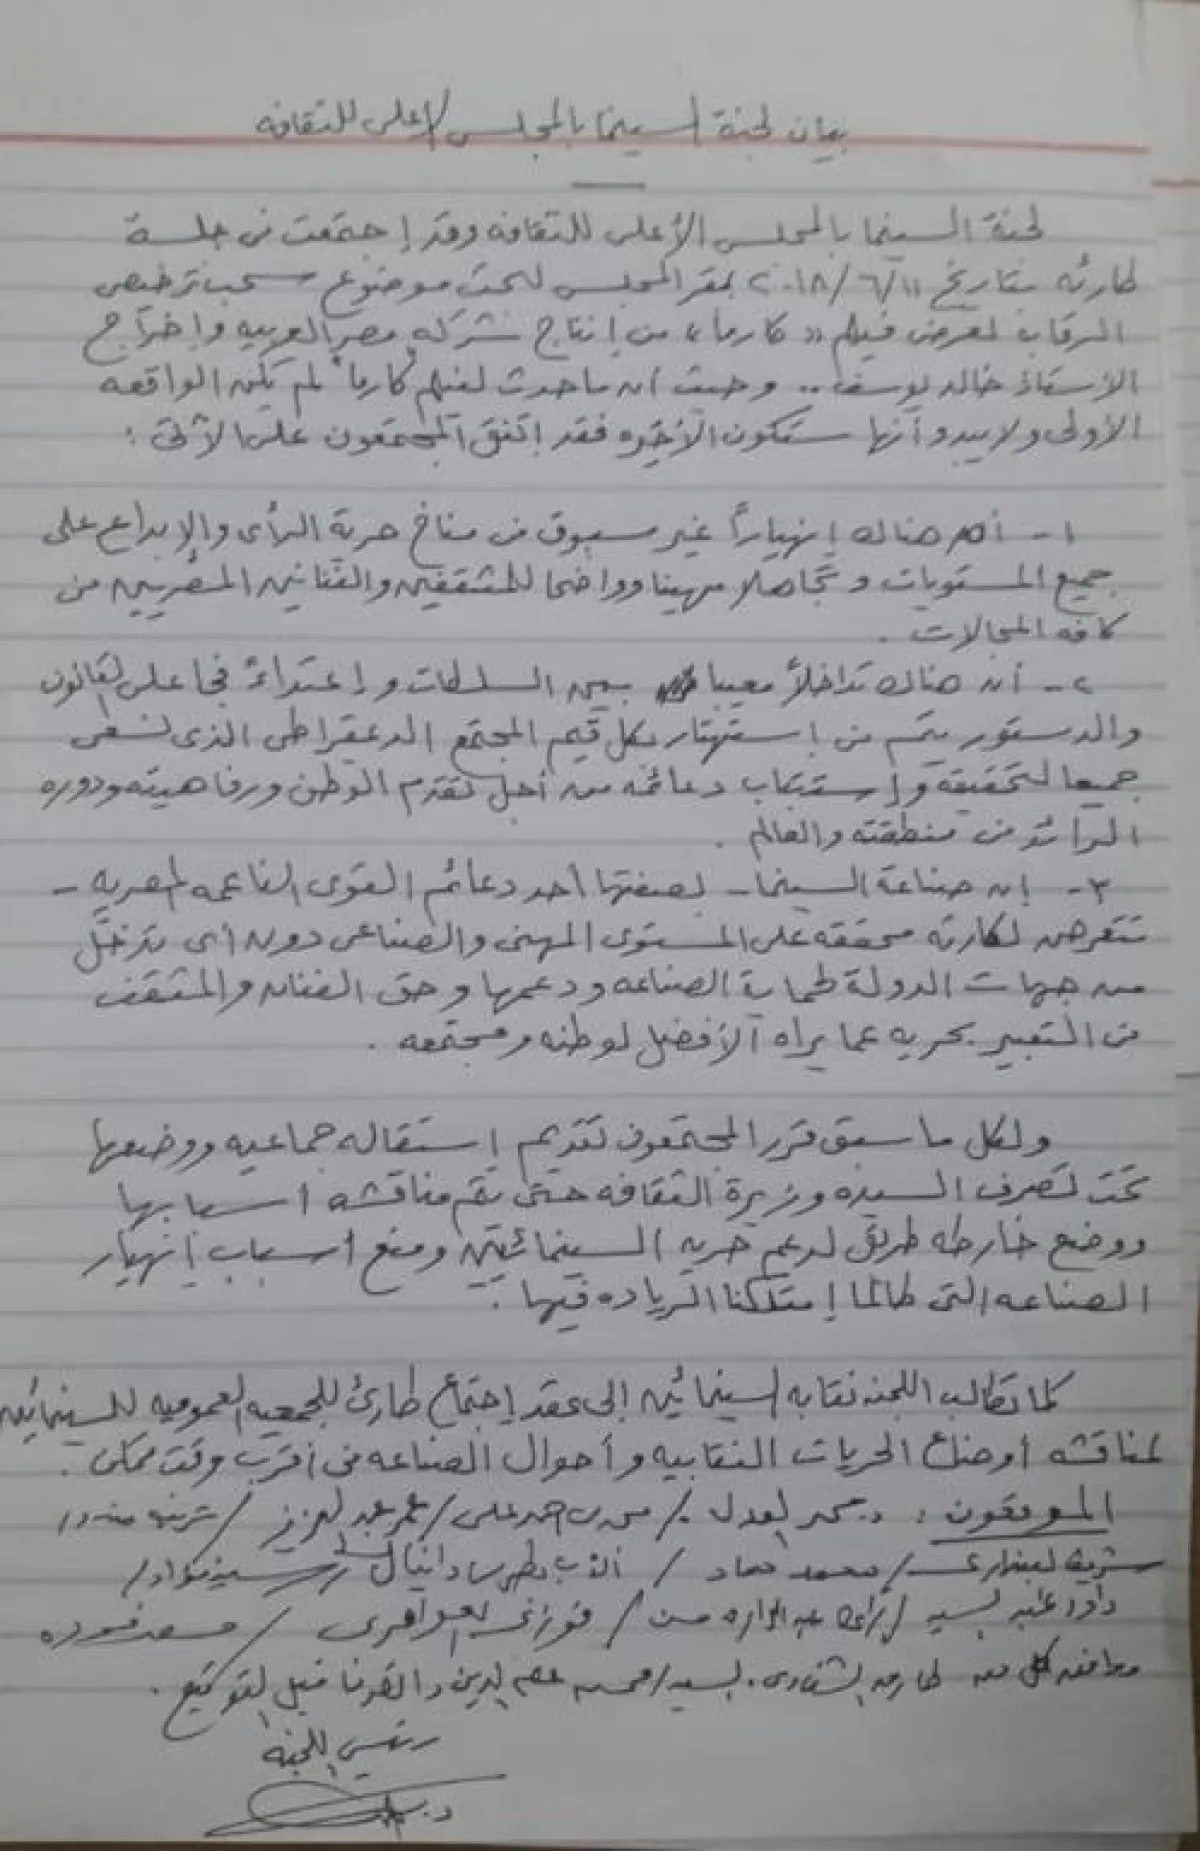 بيان لجنة السينما بالمجلس الأعلى للثقافه
لجنة السينما بالمجلس الأعلى للثقافه وقد إجتمعت فى جلسة
طارئه بتاريخ ٢٠١٨/٦/١١ بمقر المجلس لبحث موضوع سحب ترخيص
الرقابه لعرض فيلم "كارما" من إنتاج شركه مصر العربيه وإخراج
الأستاذ خالد يوسف .. وحيث أن ما حدث لفيلم "كارما" لم يكن الواقعه
الأولى ولا يبدو أنها ستكون الأخيره فقد إتفق المجتمعون على الآتى :
١- أن هناك إنهياراً غير مسبوق فى مناخ حرية الرأى والإبداع على
جميع المستويات وتجاهلا مهينا وواضحا للمثقفين والفنانين المصريين من
كافه المجالات .
٢- أن هناك تداخلاً معيبا بين السلطات وإعتداءً فجا على القانون
والدستور يتم فى إستهتار بكل قيم المجتمع الديمقراطى الذى نسعى
جميعا لتحقيقه وإستتباب دعائمه من أجل تقدم الوطن ورفاهيته ودوره
الرائد فى منطقته والعالم .
٣- إن صناعة السينما - بصفتها أحد دعائم القوى الناعمه المصريه -
تتعرض لكارثه محققه على المستوى المهنى والصناعى دون أى تدخل
من جهات الدولة لحماية الصناعه ودعمها وحق الفنان والمثقف
فى التعبير بحريه عما يراه الأفضل لوطنه ومجتمعه .
ولكل ما سبق قرر المجتمعون تقديم استقاله جماعيه ووضعها
تحت تصرف السيده وزيرة الثقافه حتى يتم مناقشه أسبابها
ووضع خارطه طريق لدعم حريه السينمائيين ومنع أسباب إنهيار
الصناعه التى طالما إمتلكنا الرياده فيها .
كما تطالب اللجنه نقابه السينمائيين إلى عقد إجتماع طارئ للجمعيه العموميه للسينمائيين
لمناقشه أوضاع الحريات النقابيه وأحوال الصناعه فى أقرب وقت ممكن .
الموقعون : د. محمد العدل / مجدى احمد على / عمر عبد العزيز /
شريف البندارى / محمد حماد /
داود عبد السيد / فوزى العوامرى / مسعد فوده
موافقه كل من طارق الشناوى . السيد/محسن علم الدين وانصرفا قبل التوقيع .
رئيس اللجنه
د.